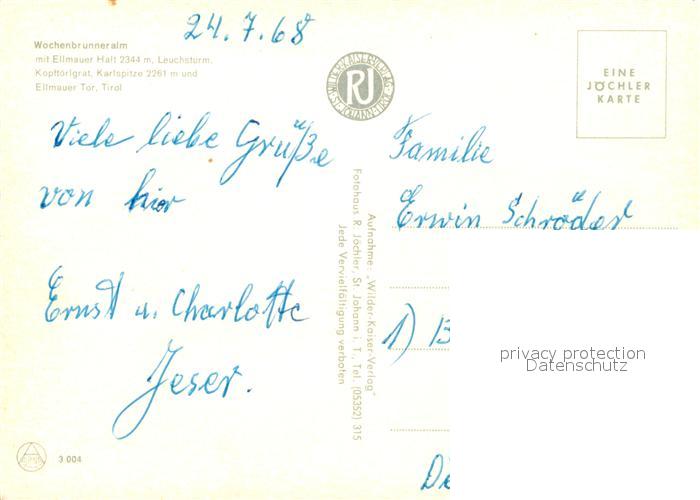 24.7.68
Wochenbrunneralm
mit Ellmauer Halt 2344 m, Leuchsturm,
Kopftörlgrat, Karlspitze 2261 m und
Ellmauer Tor, Tirol
Viele liebe Grüße
von hier
Ernst u. Charlotte
Jeser.
3 004
RJ
Aufnahme: „Wilder-Kaiser-Verlag"
Fotohaus R. Jöchler, St. Johann i. T., Tel. (05352) 315
Jede Vervielfältigung verboten
EINE
JÖCHLER
KARTE
Familie
Erwin Schröder
1) B
privacy protection
Datenschutz
Di